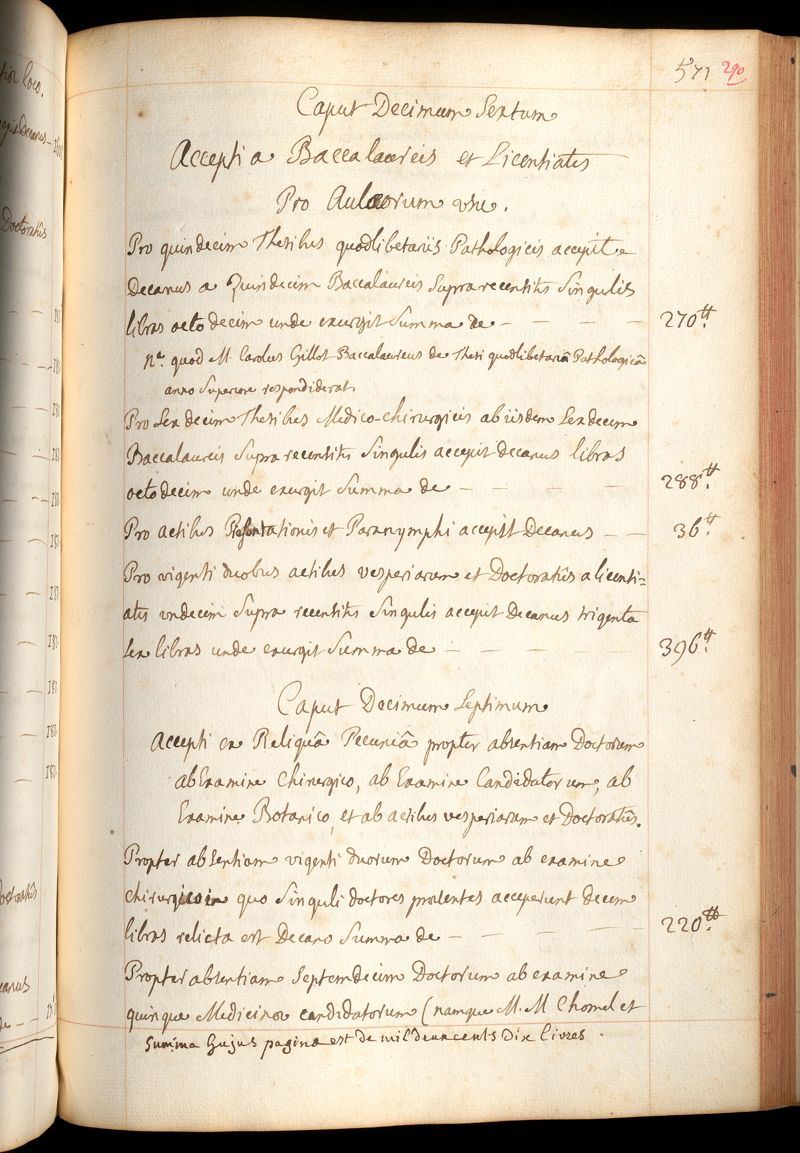 571 290
Caput Decimum Sextum
Accepti a Baccalaureis et Licentiatis
Pro Aulæorum usu.
Pro quindecim Thesibus quodlibetariis Pathologicis accepit
Decanus a Quindecim Baccalaureis Supra recensitis Singulis
libras octo decim unde exurgit Summa de — — — — 270tt.
na. quod M. Carolus Gillot Baccalaureus de Thesi quodlibetariâ Pathologicâ
anno Superiore respondiderat
Pro Sex decim Thesibus Medico-chirurgicis ab iisdem Sex decim
Baccalaureis Supra recensitis Singulis accepit Decanus libras
octo decim unde exurgit Summa de — — — — 288tt.
Pro actibus Præsentationis et Paranymphi accepit Decanus — — 36tt.
Pro viginti duobus actibus vesperiarum et Doctoratûs a licenti=
atis undecim Supra recensitis Singulis accepit Decanus triginta
Sex libras unde exurgit Summa de — — — — 396tt.
Caput Decimum Septimum
Accepti ex Reliquâ Pecuniâ propter absentiam Doctorum
ab Examine Chirurgico, ab Examine Candidatorum, ab
Examine Botanico, et ab actibus vesperiarum et Doctoratûs.
Propter absentiam viginti duorum Doctorum ab examine
chirurgico in quo Singuli doctores præsentes acceperunt decem
libras relicta est Decano Summa de — — — — 220tt.
Propter absentiam Septemdecim Doctorum ab examine
quinque Medicinæ candidatorum (namque M. M Chomel et
Summa hujus paginæ est de mil deux cents dix livres.